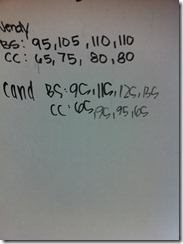 Wendy
BS: 95, 105, 110, 110
CC: 65, 75, 80, 80
Cand BS: 95, 115, 125, 135
CC: 65, 95, 95, 65